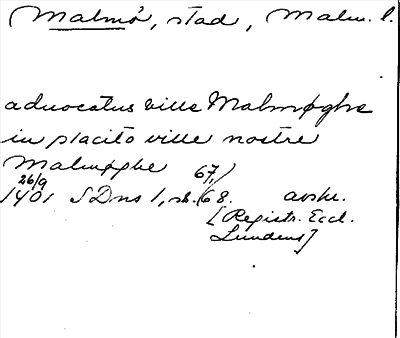 Malmö, stad, Malm. l.
aduocatus ville Malmøghe
in placito ville nostre
Malmøghe 67,)
26/9
1401 SDns 1, s. (68. avskr.
[Registr. Eccl.
Lundens]